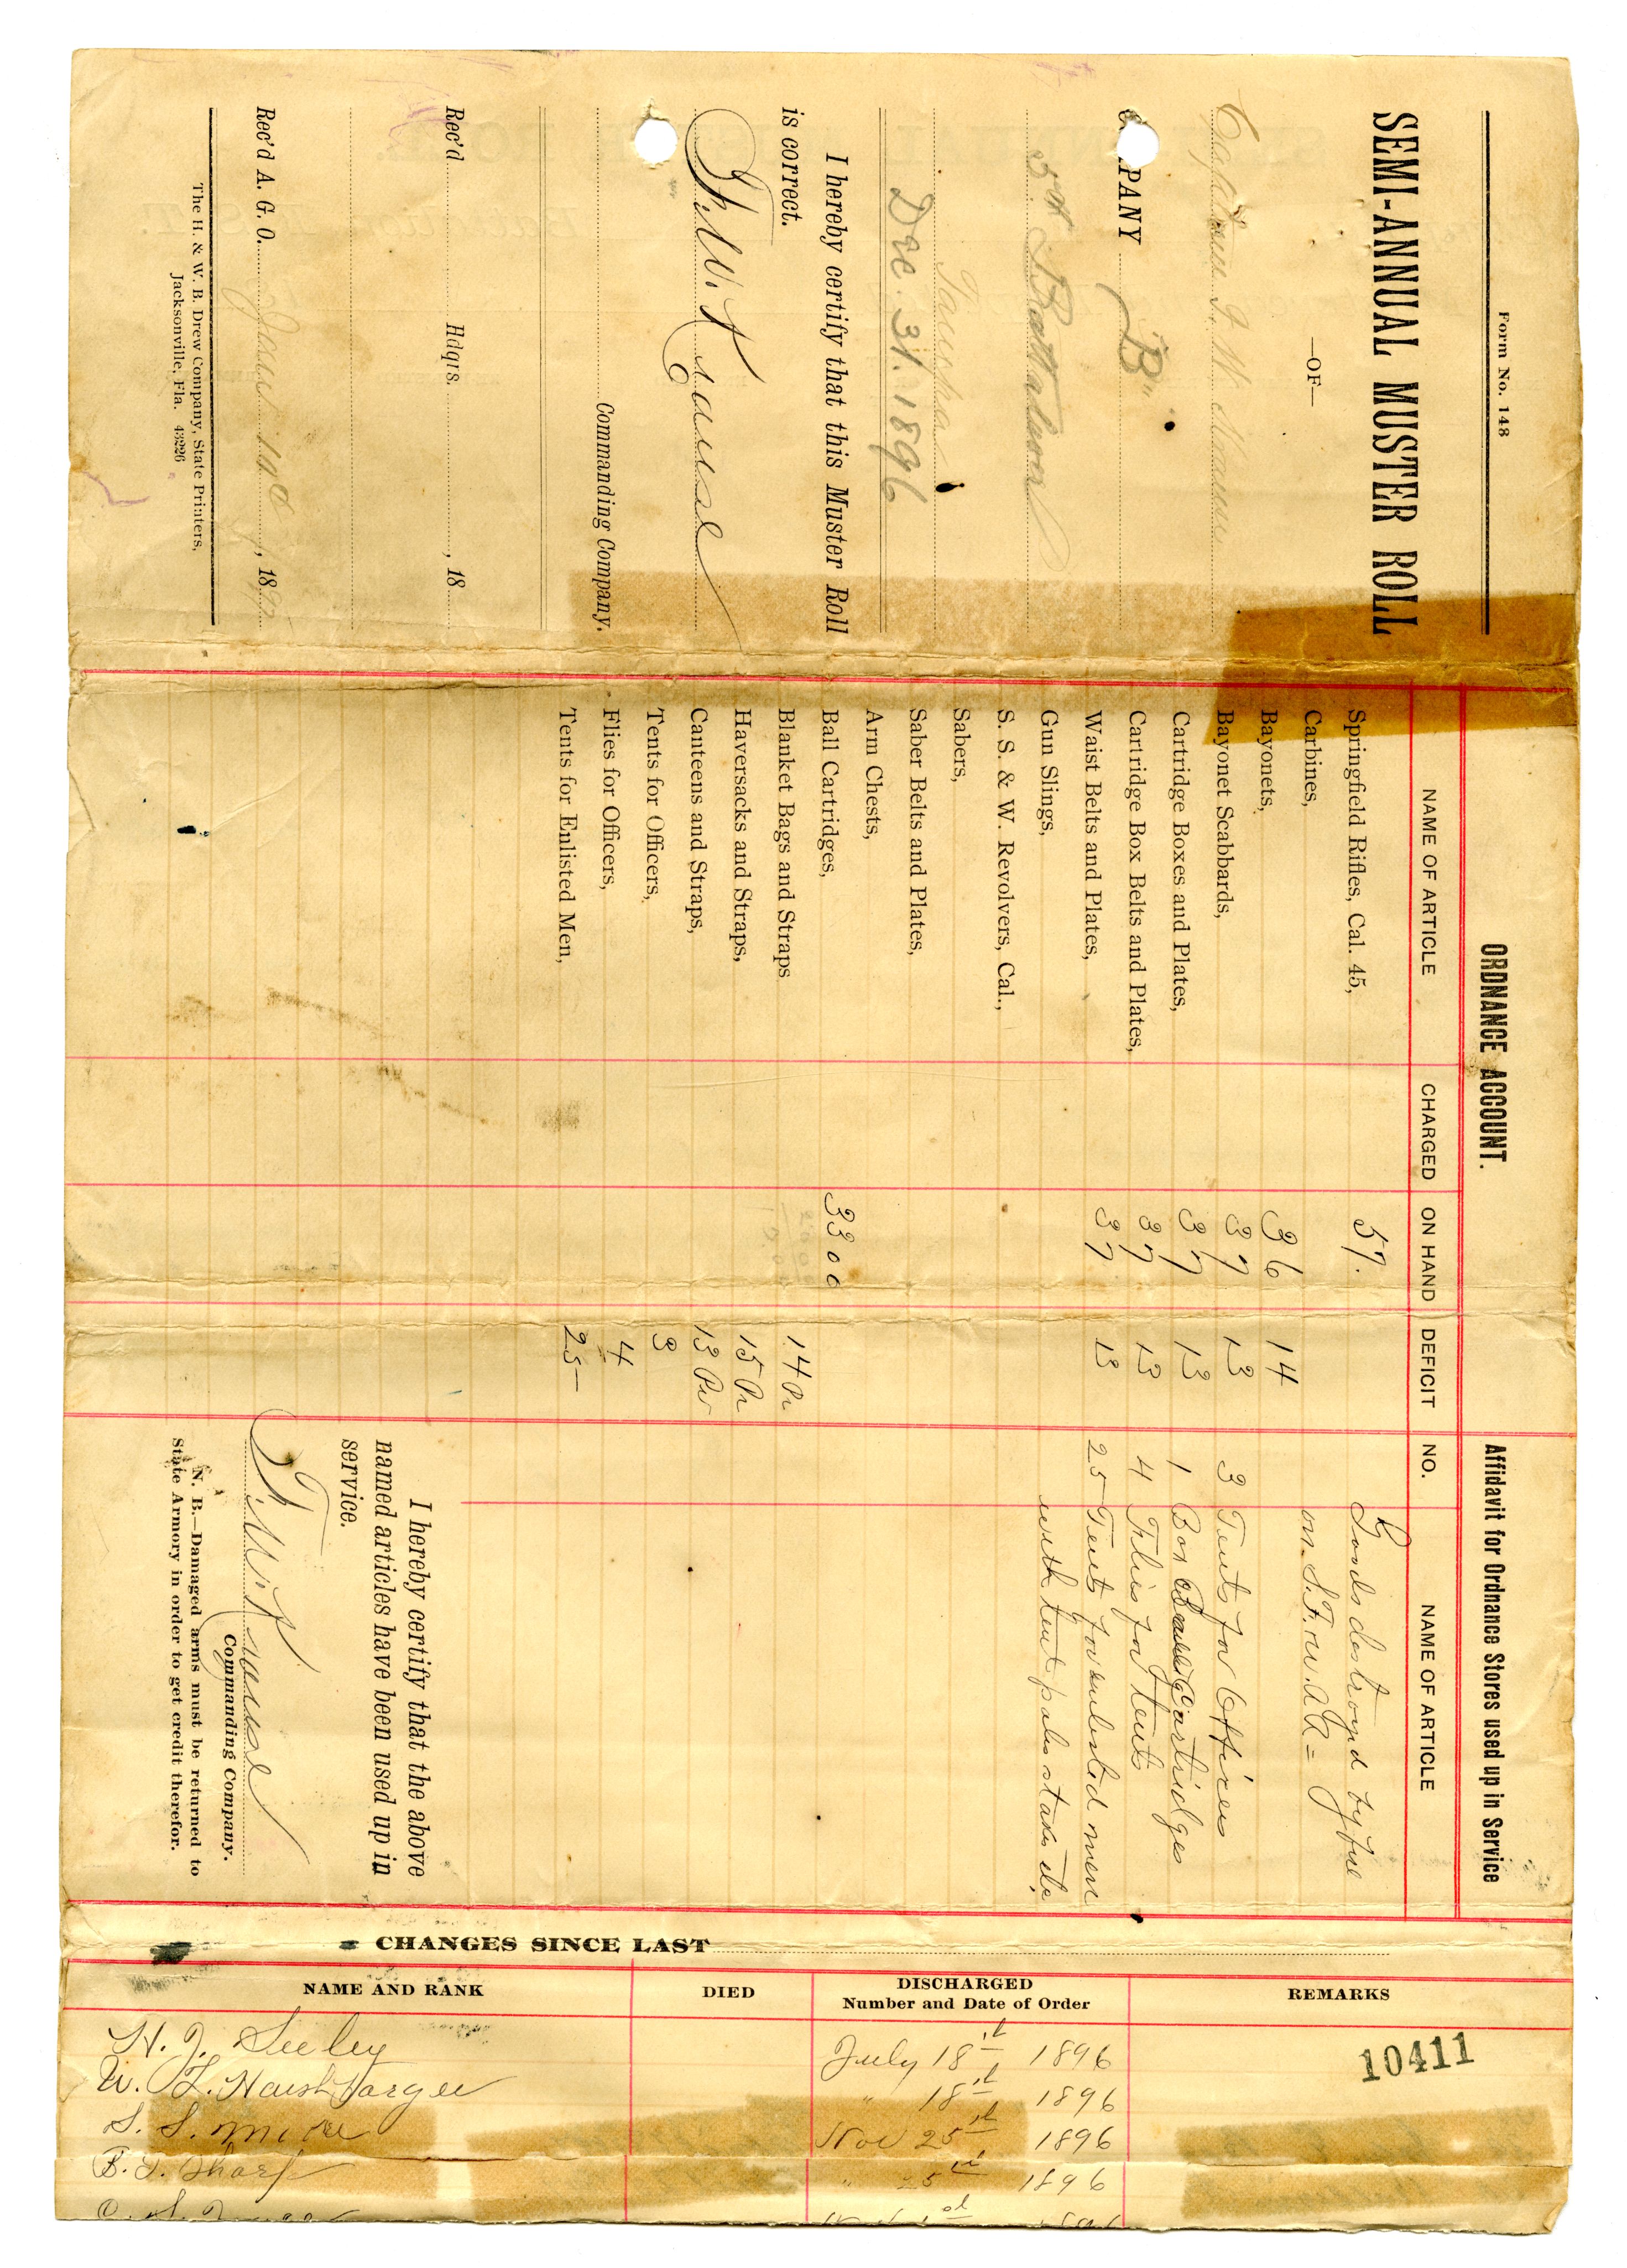 Form No. 148
SEMI-ANNUAL MUSTER ROLL
—OF—
Captain F. W. Krause
PANY "B"
5th Battalion
Tampa
Dec. 31. 1896
I hereby certify that this Muster Roll
is correct.
F. W. Krause
Commanding Company.
Rec'd Hdqrs. , 18
Rec'd A. G. O. , 18
The H. & W. B. Drew Company, State Printers,
Jacksonville, Fla. 43226
ORDNANCE ACCOUNT.
NAME OF ARTICLE CHARGED ON HAND DEFICIT
Springfield Rifles, Cal. 45, 57.
Carbines,
Bayonets, 36 14
Bayonet Scabbards, 37 13
Cartridge Boxes and Plates, 37 13
Cartridge Box Belts and Plates, 37 13
Waist Belts and Plates, 37 13
Gun Slings,
S. S. & W. Revolvers, Cal.,
Sabers,
Saber Belts and Plates,
Arm Chests,
Ball Cartridges, 3300
Blanket Bags and Straps 14 Pr
Haversacks and Straps, 15 Pr
Canteens and Straps, 13 Pr
Tents for Officers, 3
Flies for Officers, 4
Tents for Enlisted Men, 25
Affidavit for Ordnance Stores used up in Service
NO. NAME OF ARTICLE
Goods destroyed by fire
on S. F. & W. R. R. =
3 Tents for Officers
1 Box Ball Cartridges
4 Flies for tents
25 Tents for enlisted men
with tent poles stakes etc.
I hereby certify that the above
named articles have been used up in
service.
F. W. Krause
Commanding Company.
N. B.—Damaged arms must be returned to
State Armory in order to get credit therefor.
CHANGES SINCE LAST
NAME AND RANK DIED DISCHARGED Number and Date of Order REMARKS
10411
H. J. Seeley July 18th 1896
W. L. " 18th 1896
S. S. Moore Nov 25th 1896
B. T. Sharp " 25th 1896